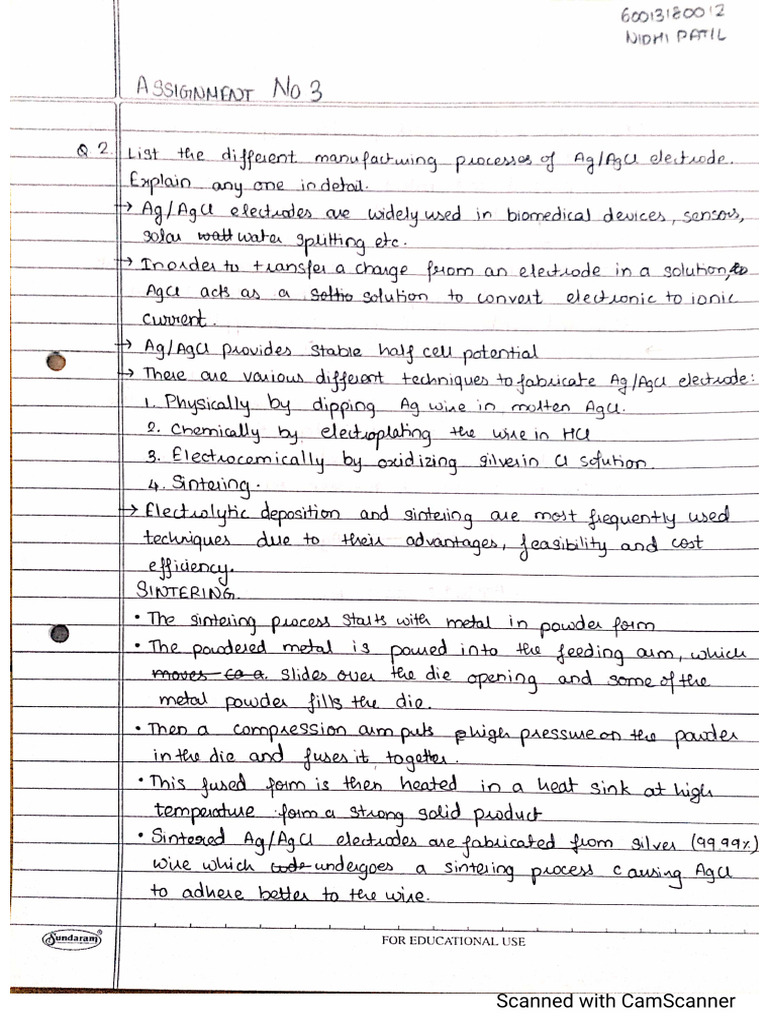 60013180012
NIDHI PATIL
ASSIGNMENT No 3
Q 2. List the different manufacturing processes of Ag/AgCl electrode.
Explain any one in detail.
→ Ag/AgCl electrodes are widely used in biomedical devices, sensors,
solar watt water splitting etc.
→ Inorder to transfer a charge from an electrode in a solution, to
AgCl acts as a soltio solution to convert electronic to ionic
current.
→ Ag/AgCl provides stable half cell potential
→ There are various different techniques to fabricate Ag/AgCl electrode:
1. Physically by dipping Ag wire in molten AgCl.
2. Chemically by electroplating the wire in HCl
3. Electrocemically by oxidizing silver in Cl solution.
4. Sintering.
→ Electrolytic deposition and sintering are most frequently used
techniques due to their advantages, feasibility and cost
efficiency.
SINTERING
• The sintering process starts with metal in powder form
• The powdered metal is poured into the feeding arm, which
moves to a. slides over the die opening and some of the
metal powder fills the die.
• Then a compression arm puts high pressure on the powder
in the die and fuses it, together.
• This fused form is then heated in a heat sink at high
temperature form a strong solid product
• Sintered Ag/AgCl electrodes are fabricated from silver (99.99%)
wire which undergoes a sintering process causing AgCl
to adhere better to the wire.
Sundaram
FOR EDUCATIONAL USE
Scanned with CamScanner